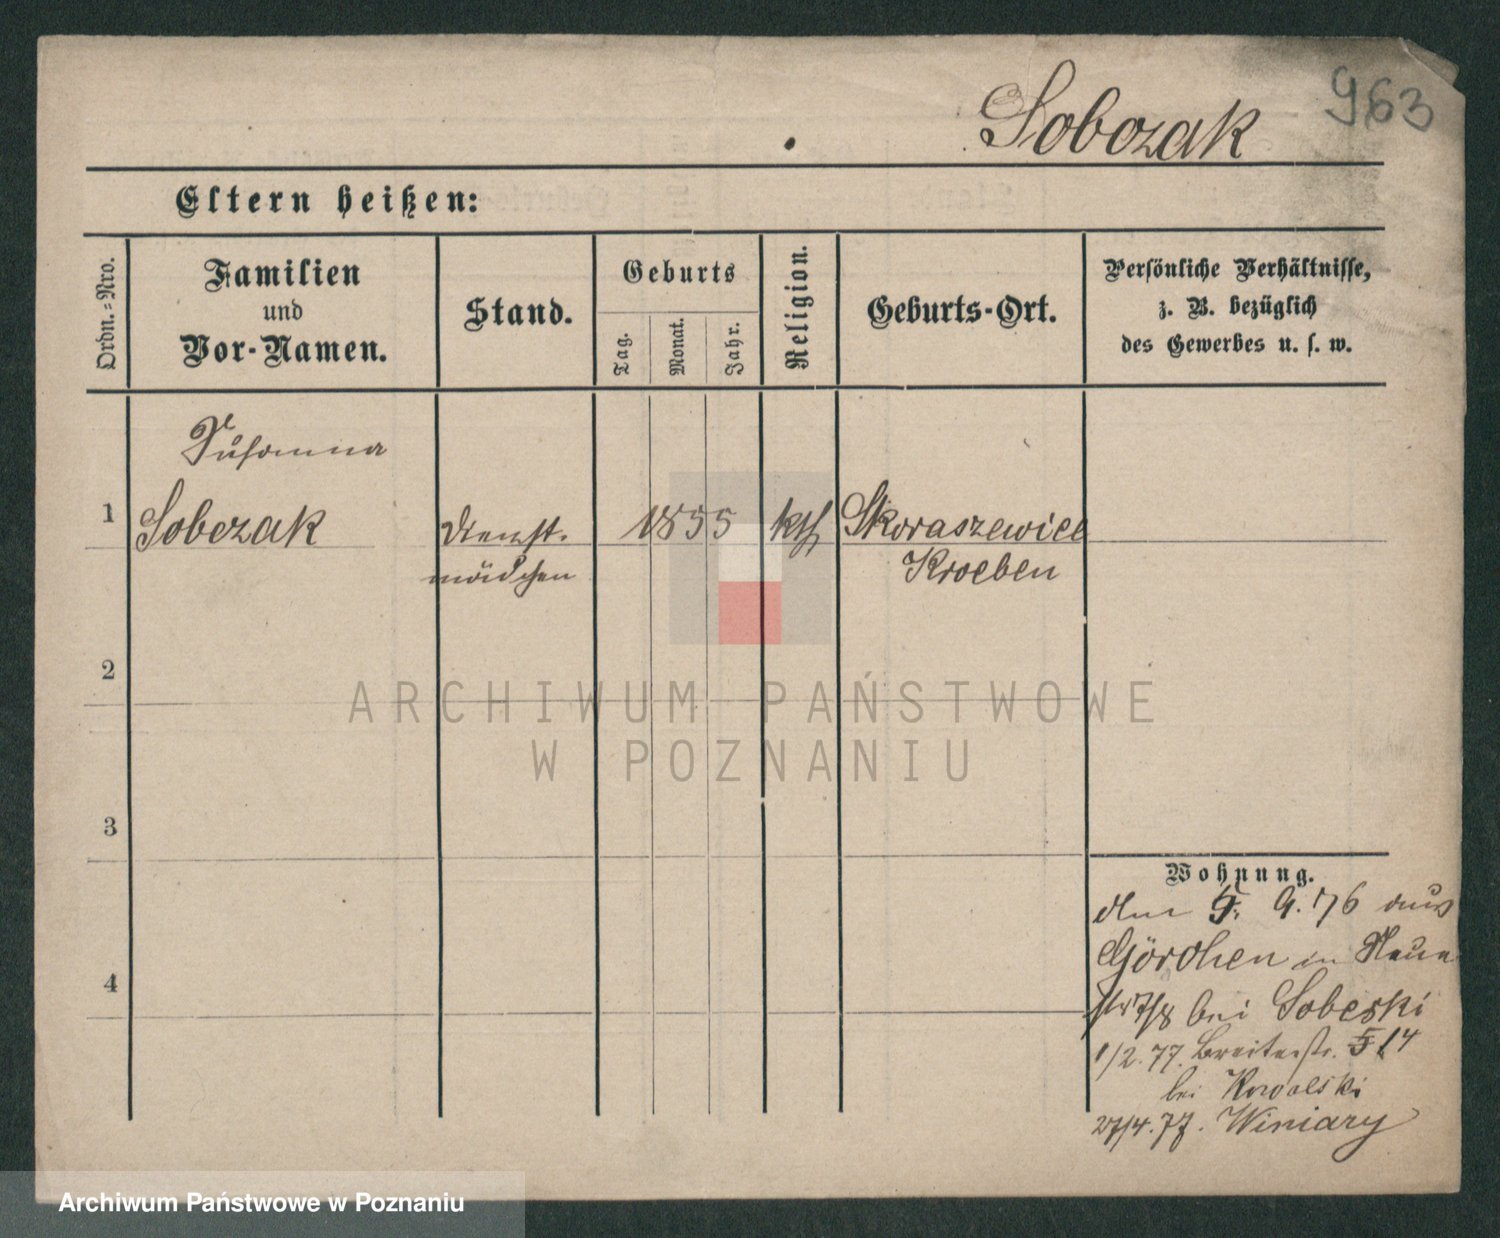 963
Sobczak
Eltern heißen:
Ordn.-Nro.
Familien
und
Vor-Namen.
Stand.
Geburts
Tag.
Monat.
Jahr.
Religion.
Geburts-Ort.
Persönliche Verhältnisse,
z. B. bezüglich
des Gewerbes u. s. w.
Susanna
1 Sobczak Dienst- 1855 kth Skoraszewice
mädchen Kroeben
2
3
4
Wohnung.
den 5. 9. 76 aus
Görchen in Neue
str 7/8 bei Sobeski
1/2. 77. Breitestr. 14
bei Kowalski
27/4. 77. Winiary
ARCHIWUM PAŃSTWOWE
W POZNANIU
Archiwum Państwowe w Poznaniu